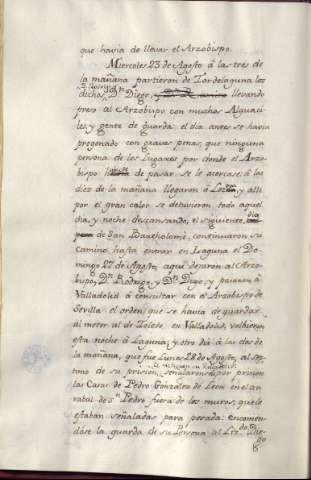 que havia de llevar el Arzobispo.
Miercoles 23 de Agosto à las tres de
la mañana partieron de Tordelaguna los
dichos, Dn Diego, llevando
preso al Arzobispo con muchos Alguaci
les y gente de guarda: el dia antes se havia
pregonado con graves penas, que ninguna
persona de los Lugares por donde el Arzo-
bispo de pasar se le acercase: à las
diez de la mañana llegaron à y alli
por el gran calor se detuvieron todo aquel
dia, y noche descansando, el siguiente, dia
de San Bartholomè, continuaron su
camino hasta entrar en Laguna el Do-
mingo 27 de Agosto, aqui dejaron al Arzo-
bispo, Dn Rodrigo, y Dn Diego y pasaron à
Valladolid à consultar con el Arzobispo de
Sevilla el orden que se havia de guardar
al meter al de Toledo en Valladolid, volvieron
esta noche à Laguna, y otro dia à las dos de
la mañana, que fue Lunes 28 de Agosto, al sep-
timo de su prision, señalaron por prision
las Casas de Pedro Gonzalez de Leon en el ar-
rabal de Sn Pedro fuera de los muros, que le
estaban señaladas para posada: encomen-
dòse la guarda de su Persona al Lizdo Die-
go